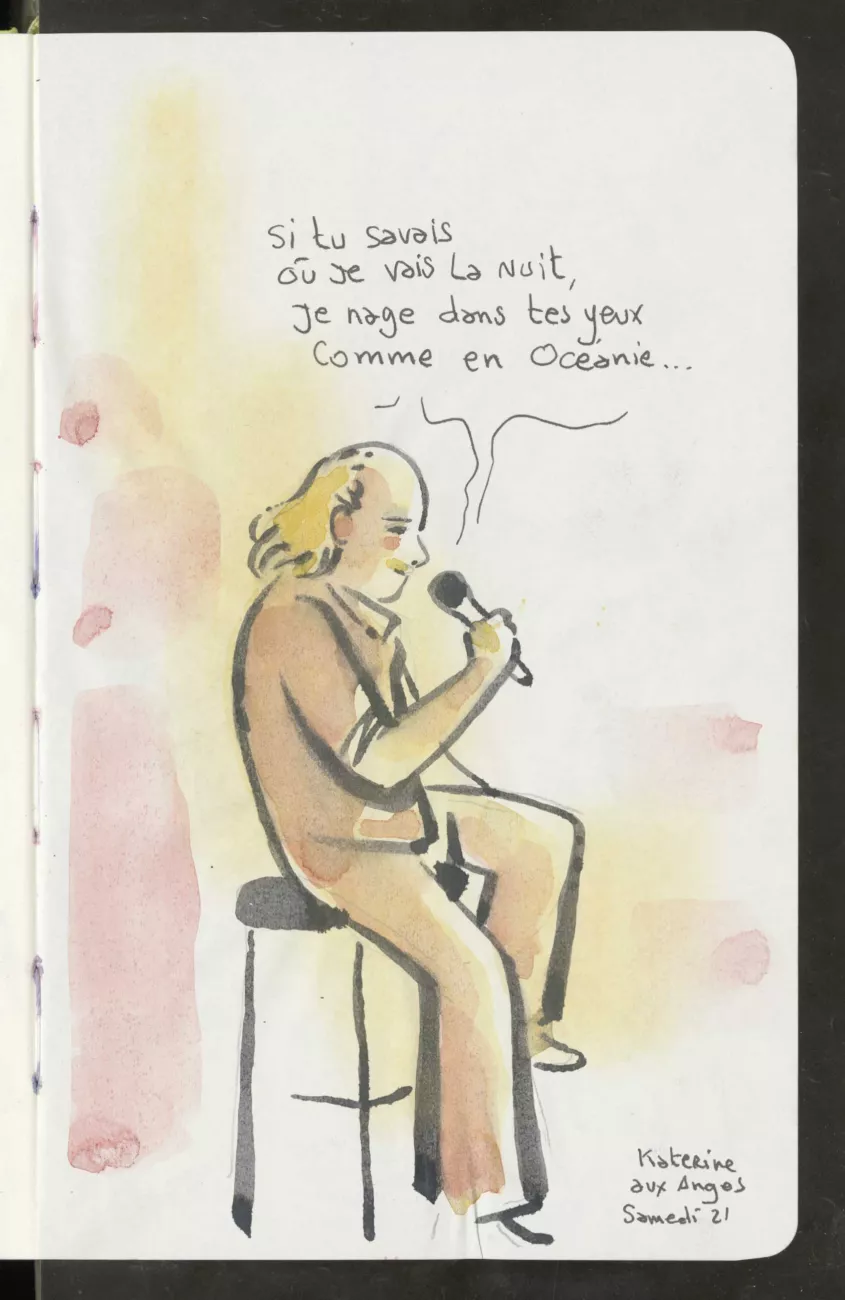 Si tu savais
où je vais la nuit,
je nage dans tes yeux
Comme en Océanie...
Katerine
aux Angos
Samedi 21